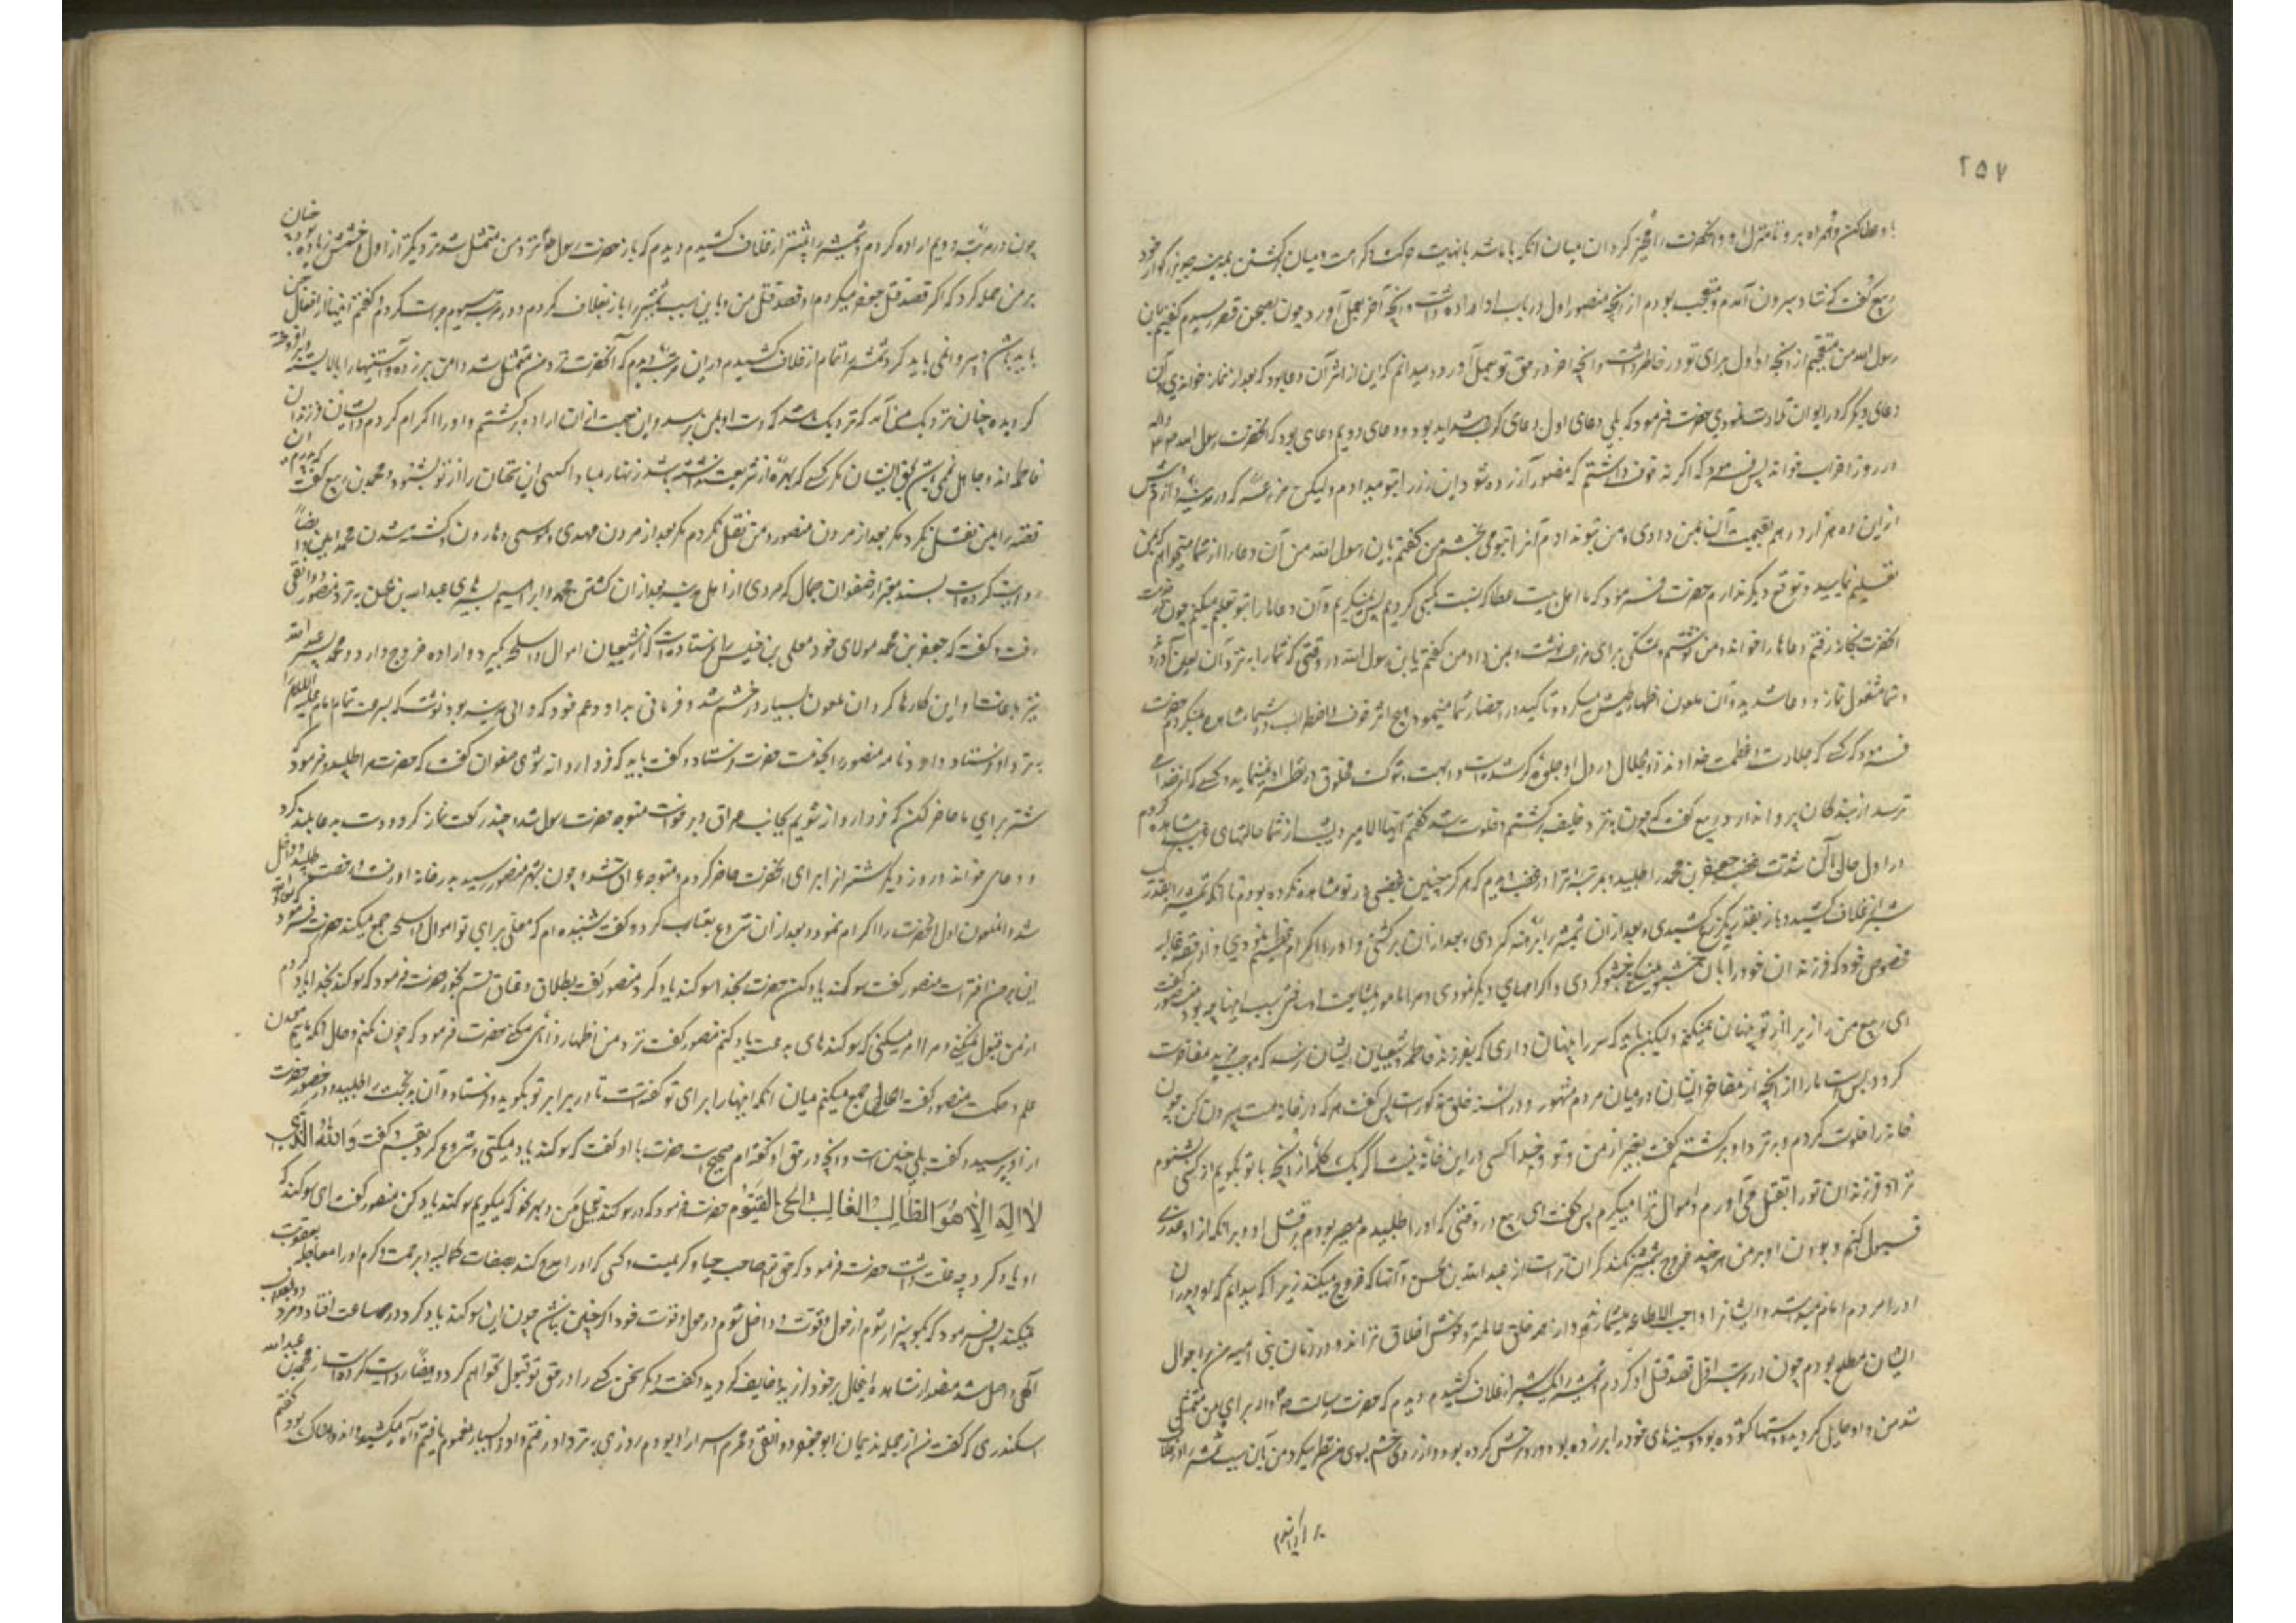 ۲۵۷
با و عطا کن و همراه برو تا منزل او و آنحضرت را مخیر گردان میان آنکه با ما باشد بانهایت حرکت و کرامت و میان برگشتن بمدینه جد بزرگوار خود
ربیع گفت که شاد بیرون آمدم و متعجب بودم از آنچه منصور اول در باب او اراده داشت و آنچه آخر بعمل آورد چون بصحن قصر رسیدم گفتم یا بن
رسول الله من متعجبم از آنچه او اول برای تو در خاطر داشت و آنچه آخر در حق تو بعمل آورد و میدانم که این از اثر آن دعا بود که بعد از نماز خواندی و آن
دعای دیگر که در ایوان تلاوت نمودی حضرت فرمود که بلی دعای اول دعای کرب و شداید بود و دعای دویم دعای بود که حضرت رسول الله صلی الله علیه و آله
در روز احزاب خواند پس فرمود که اگر نه خوف داشتم که منصور آزرده شود این زر را بتو میدادم ولیکن مزرعه که در مدینه دارم و پیش
از این ده هزار درهم بقیمت آن بمن دادی و من بتو ندادم آنرا بتو می بخشم من گفتم یا بن رسول الله من آن دعا را از شما میخواهم که بمن
تعلیم نمایید و توقع دیگر ندارم حضرت فرمود که ما اهل بیت عطا که نسبت بکسی کردیم پس نمیگیریم و آن دعاها را بتو تعلیم میکنم چون در خدمت
آنحضرت بخانه رفتم دعاها را خواند و من نوشتم و تمسکی برای مزرعه نوشت و بمن داد من گفتم یا بن رسول الله در وقتی که شما را به نزد آن لعین آوردند
و شما مشغول نماز و دعا شدید و آن ملعون اظهار طیش میکرد و تاکید در احضار شما مینمود هیچ اثر خوف و اضطراب در شما مشاهده نمیکردم حضرت
فرمود که کسی که جلالت و عظمت خداوند ذوالجلال در دل او جلوه گر شده است و ابهت و شوکت مخلوق در نظر او نمینماید و کسی که از خدا
ترسد از بندگان پروا ندارد ربیع گفت که چون بنزد خلیفه برگشتم و خلوت شد گفتم ایها الامیر دیشب از شما حالتهای غریب مشاهده کردم
در اول حال با آن شدت غضب جعفر بن محمد را طلبیدی و بمرتبه ترا در غضب دیدم که هرگز چنین غضبی در تو مشاهده نکرده بودم تا آنکه شمشیر را بقدر یک
شبر از غلاف کشیدی و باز بقدر یک ذرع کشیدی و بعد از آن شمشیر را برهنه کردی و بعد از آن برگشتی و او را اکرام عظیم نمودی و از حقه غالیه
مخصوص خود که فرزندان خود را بآن خوشبو نمیکنی خوشبو کردی و اکرامهای دیگر نمودی و مرا مامور بمشایعت او ساختی سبب اینها چه بود منصور گفت
ای ربیع من راز خود از تو پنهان نمیکنم ولیکن باید که سر را پنهان داری که بفرزند فاطمه و شیعیان ایشان نرسد که موجب مزید مفاخرت ایشان
گردد بس است ما را آنچه از مفاخر ایشان در میان مردم مشهور و در السنه خلق مذکور است پس گفت هر که در خانه هست بیرون کن چون
خانه را خلوت کردم و به نزد او برگشتم گفت بغیر از من و تو و خدا کسی در این خانه نیست اگر یک کلمه از آنچه با تو بگویم از کسی بشنوم
ترا و فرزندان تو را بقتل می آورم و اموال ترا میگیرم پس گفت ای ربیع در وقتی که او را طلبیدم مصر بودم بر قتل او و بر آنکه از او عذری
قبول نکنم و بودن او بر من هر چند خروج بشمشیر نکند گران تر است از عبد الله بن حسن و آنها که خروج میکنند زیرا که میدانم که او و پدران
او را مردم امام میدانند و ایشان را واجب الاطاعه میشمارند و از همه خلق عالمتر و خوش اخلاق تراند و در زمان بنی امیه من بر احوال
ایشان مطلع بودم چون در مرتبه اول قصد قتل او کردم و شمشیر را یک شبر از غلاف کشیدم دیدم که حضرت رسالت ص و آله برای من متمثل
شد میان من و او حایل گردید و دستها گشوده بود و آستینهای خود را بر زده بود و رو ترش کرده بود و از روی خشم بسوی من نظر میکرد من بآن سبب شمشیر را در غلاف
بر گردانیدم
چون در مرتبه دویم اراده کردم و شمشیر را بیشتر از غلاف کشیدم دیدم که باز حضرت رسول ص نزد من متمثل شد نزدیکتر از اول و خشمش زیاده بود و چنان
بر من حمله کرد که اگر قصد قتل جعفر میکردم او قصد قتل من و باین سبب شمشیر را باز بغلاف کردم و در مرتبه سیوم جرات کردم و گفتم اینها از افعال جن
باید باشد و پروا نمی باید کرد و شمشیر را تمام از غلاف کشیدم در این مرتبه دیدم که آنحضرت نزد من متمثل شد دامن بر زده و آستینها را بالا بسته و برافروخته
گردیده چنان نزدیک من آمد که نزدیک شد که دست او بمن برسد و این جهت از آن اراده برگشتم و او را اکرام کردم و ایشان فرزندان
فاطمه اند و جاهل نمی باشد بحق ایشان مگر کسی که بهره از شریعت نداشته باشد زنهار مبادا کسی این سخنان را از تو بشنود و محمد بن ربیع گفت که پدرم این
قصه را بمن نقل نکرد مگر بعد از مردن منصور و من نقل نکردم مگر بعد از مردن مهدی و موسی و هارون و کشته شدن محمد امین و ایضاً
روایت کرده است بسند معتبر از صفوان جمال که مردی از اهل مدینه بعد از آن کشتن محمد و ابراهیم پسرهای عبد الله بن حسن به نزد منصور دوانقی
رفت و گفت که جعفر بن محمد مولای خود معلی بن خنیس را فرستاده است که از شیعیان اموال و اسلحه بگیرد و اراده خروج دارد و محمد پسر عبد الله
نیز باعانت او این کارها کرد آن ملعون بسیار در خشم شد و فرمانی به داود عم خود که والی مدینه بود نوشت که بسرعت تمام امام علیه السلام را
به نزد او فرستاد داود نامه منصور را بخدمت حضرت فرستاد و گفت باید که فردا روانه شوی صفوان گفت که حضرت مرا طلبید و فرمود که
شتر برای ما حاضر کن که فردا روانه شویم بجانب عراق و برخاست متوجه مسجد حضرت رسول شد و چند رکعت نماز کرد و دست به دعا بلند کرد
و دعای خواند و روز دیگر شتران را برای آنحضرت حاضر کردم و متوجه عراق شد و چون بشهر منصور رسید به در خانه او رفت و رخصت طلبید و داخل
شد و آن ملعون اول آنحضرت را اکرام نمود و بعد از آن شروع بعتاب کرد و گفت شنیده ام که معلی برای تو اموال و اسلحه جمع میکند حضرت فرمود که معاذ الله
این بر من افتراست منصور گفت سوگند یاد کن حضرت بخدا سوگند یاد کرد منصور گفت بطلاق و عتاق قسم بخور حضرت فرمود که سوگند بخدا یاد کردم
از من قبول نمیکنی و مرا امر میکنی که سوگندهای بدعت یاد کنم منصور گفت نزد من اظهار دانائی میکنی حضرت فرمود که چون نکنم و حال آنکه مائیم معدن
علم و حکمت منصور گفت الحال جمع میکنم میان تو و آنکه اینها را برای تو گفته است تا در برابر تو بگوید و فرستاد و آن بدبخت را طلبید و در حضور حضرت
از او پرسید گفت بلی چنین است و آنچه در حق او گفته ام صحیح است حضرت با او گفت که سوگند یاد میکنی گفت بلی و شروع کرد بقسم و گفت وَاللهِ الَّذِی
لا اِلهَ اِلاّ هُوَ الطّالِبُ الغالِبُ الحَیُّ القَیُّومُ حضرت فرمود که در سوگند تعجیل مکن و بهر نحو که میگویم سوگند یاد کن منصور گفت ای سوگند که
او یاد کرد چه علت داشت حضرت فرمود که حق تعالی صاحب حیا و کریم است و کسی که او را مدح کند بصفات کمالیه و برحمت و کرم او را معاجله بعقوبت
نمیکند پس فرمود که بگو بیزار شوم از حول و قوت خدا و داخل شوم در حول و قوت خود اگر چنین نباشد چون این سوگند یاد کرد در همان ساعت افتاد و مرد و بعذاب
الهی واصل شد منصور از مشاهده اینحال بر خود لرزید و خایف گردید و گفت دیگر سخن کسی را در حق تو قبول نخواهم کرد و ایضاً روایت کرده است از محمد بن عبد الله
اسکندری که گفت من از جمله ندیمان ابو جعفر دوانقی و محرم اسرار او بودم روزی به نزد او رفتم و او را بسیار مغموم یافتم و آه میکشید و اندوهناک بود گفتم